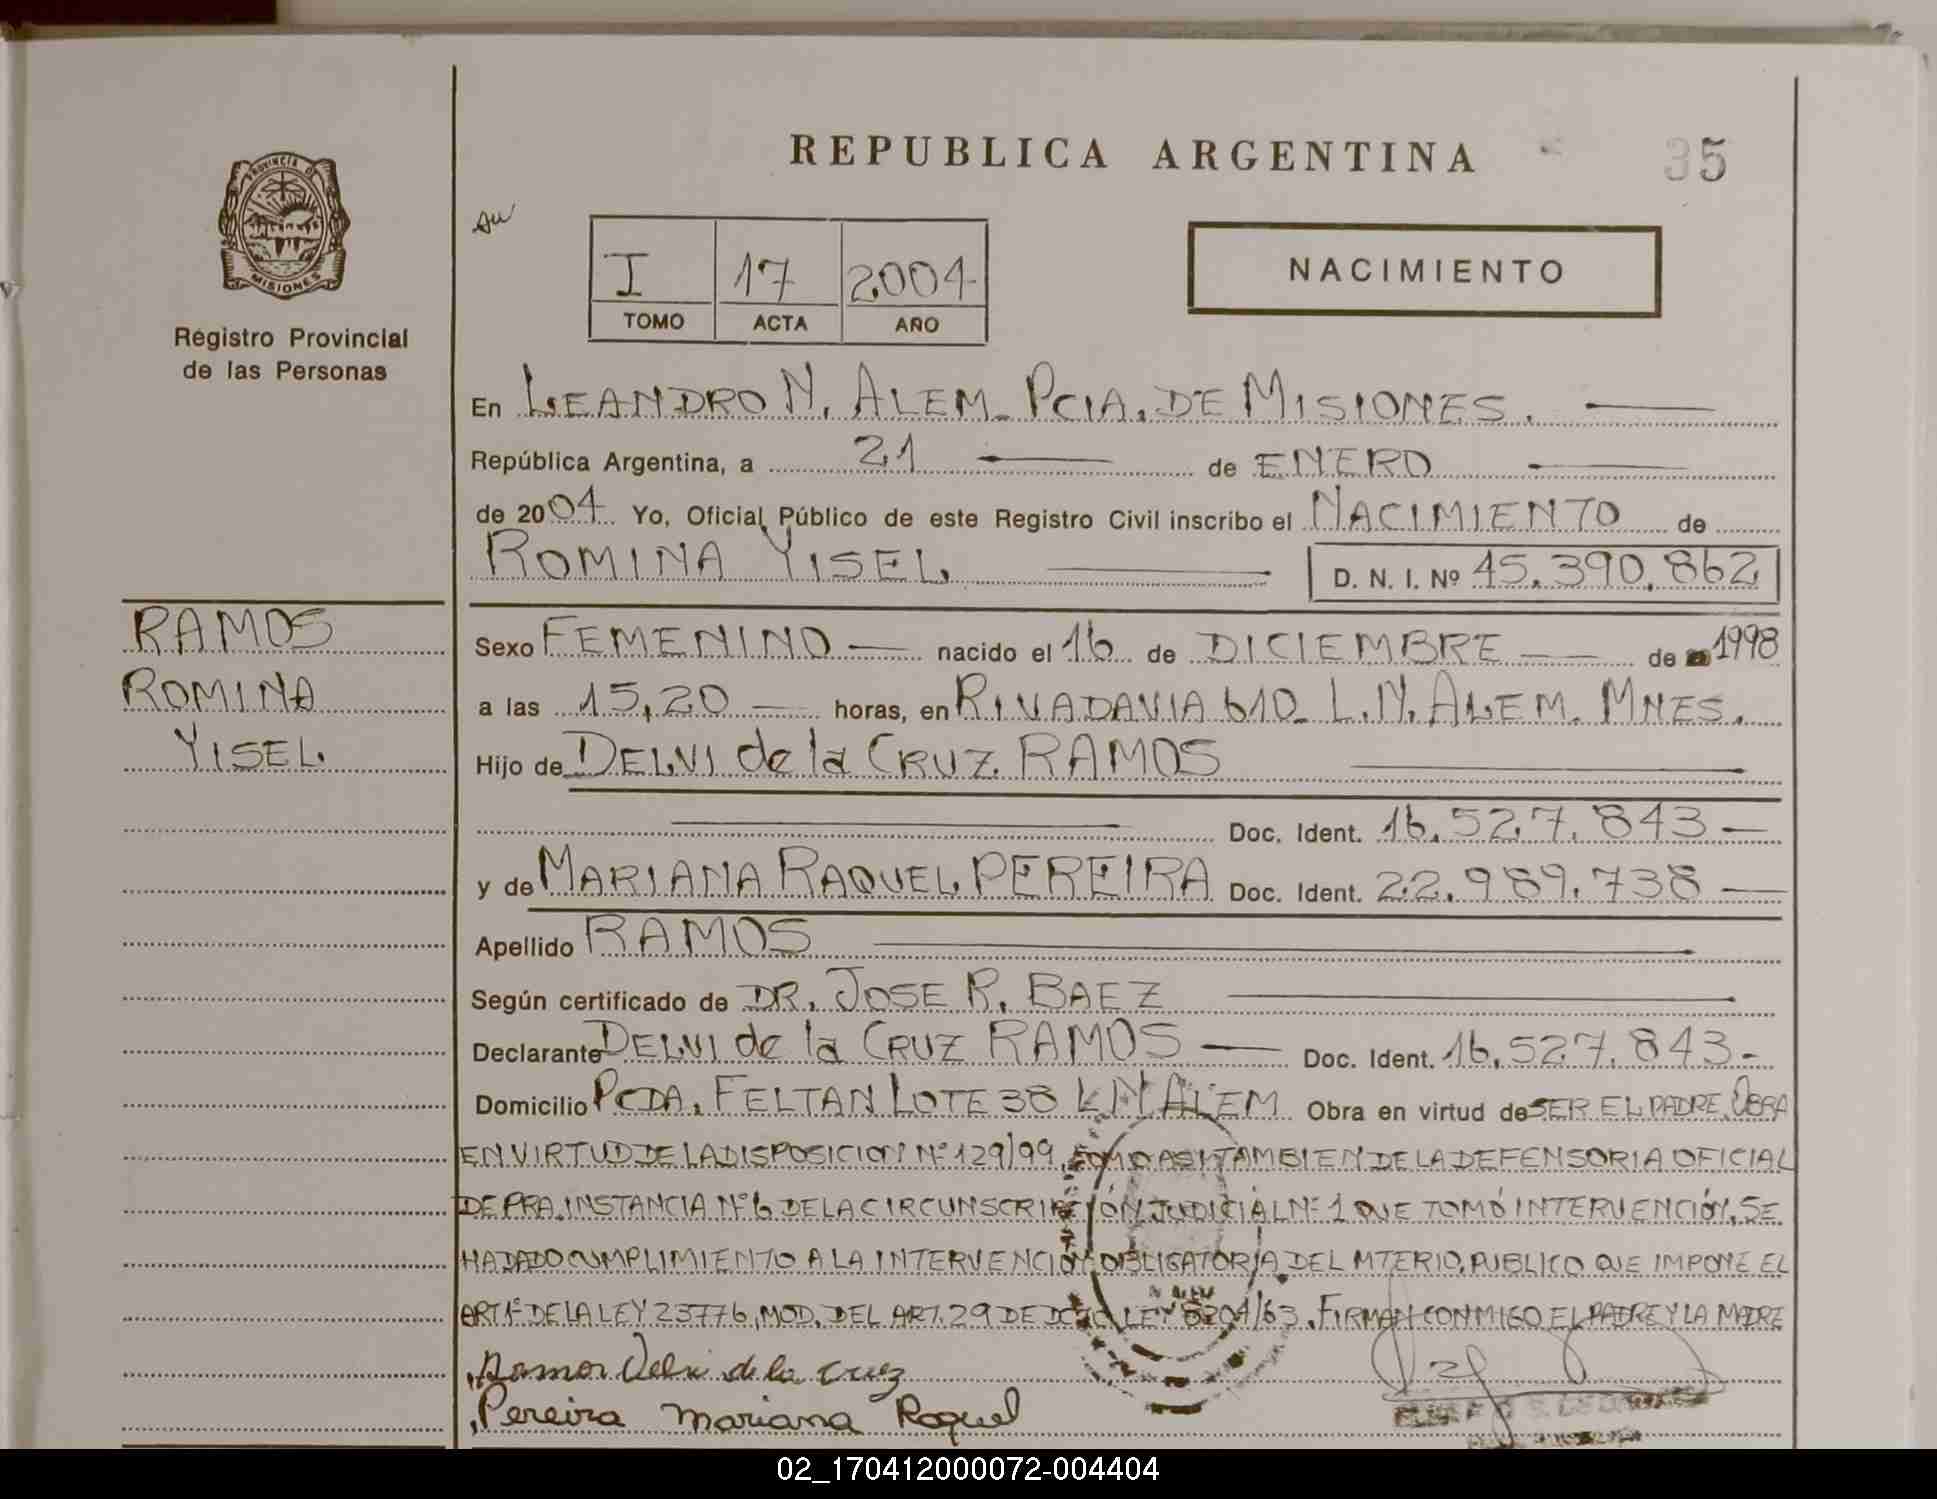 REPUBLICA ARGENTINA
35
PROVINCIA DE
MISIONES
Registro Provincial
de las Personas
I 17 2004
TOMO ACTA AÑO
NACIMIENTO
En LEANDRO N. ALEM. PCIA. DE MISIONES.
República Argentina, a 21 de ENERO
de 2004 Yo, Oficial Público de este Registro Civil inscribo el NACIMIENTO de
ROMINA YISEL. D. N. I. Nº 45.390.862
RAMOS
ROMINA
YISEL.
Sexo FEMENINO nacido el 16 de DICIEMBRE de 1998
a las 15,20 horas, en RIVADAVIA 610. L.N. ALEM. MNES.
Hijo de DELVI de la CRUZ RAMOS
Doc. Ident. 16.527.843
y de MARIANA RAQUEL PEREIRA Doc. Ident. 22.989.738
Apellido RAMOS
Según certificado de DR. JOSE R. BAEZ
Declarante DELVI de la CRUZ RAMOS Doc. Ident. 16.527.843.
Domicilio PCDA. FELTAN LOTE 38 L N ALEM Obra en virtud de SER EL PADRE. OBRA
EN VIRTUD DE LA DISPOSICION Nº 129/99, COMO ASI TAMBIEN DE LA DEFENSORIA OFICIAL
DE PRA. INSTANCIA Nº 6 DE LA CIRCUNSCRIPCIÓN JUDICIAL Nº 1 QUE TOMÓ INTERVENCIÓN. SE
HA DADO CUMPLIMIENTO A LA INTERVENCIÓN OBLIGATORIA DEL MTERIO. PUBLICO QUE IMPONE EL
ART 1º DE LA LEY 23776, MOD. DEL ART. 29 DE DCTO LEY 8204/63. FIRMAN CONMIGO EL PADRE Y LA MADRE
Ramos Delvi de la cruz
Pereira Mariana Raquel
02_170412000072-004404